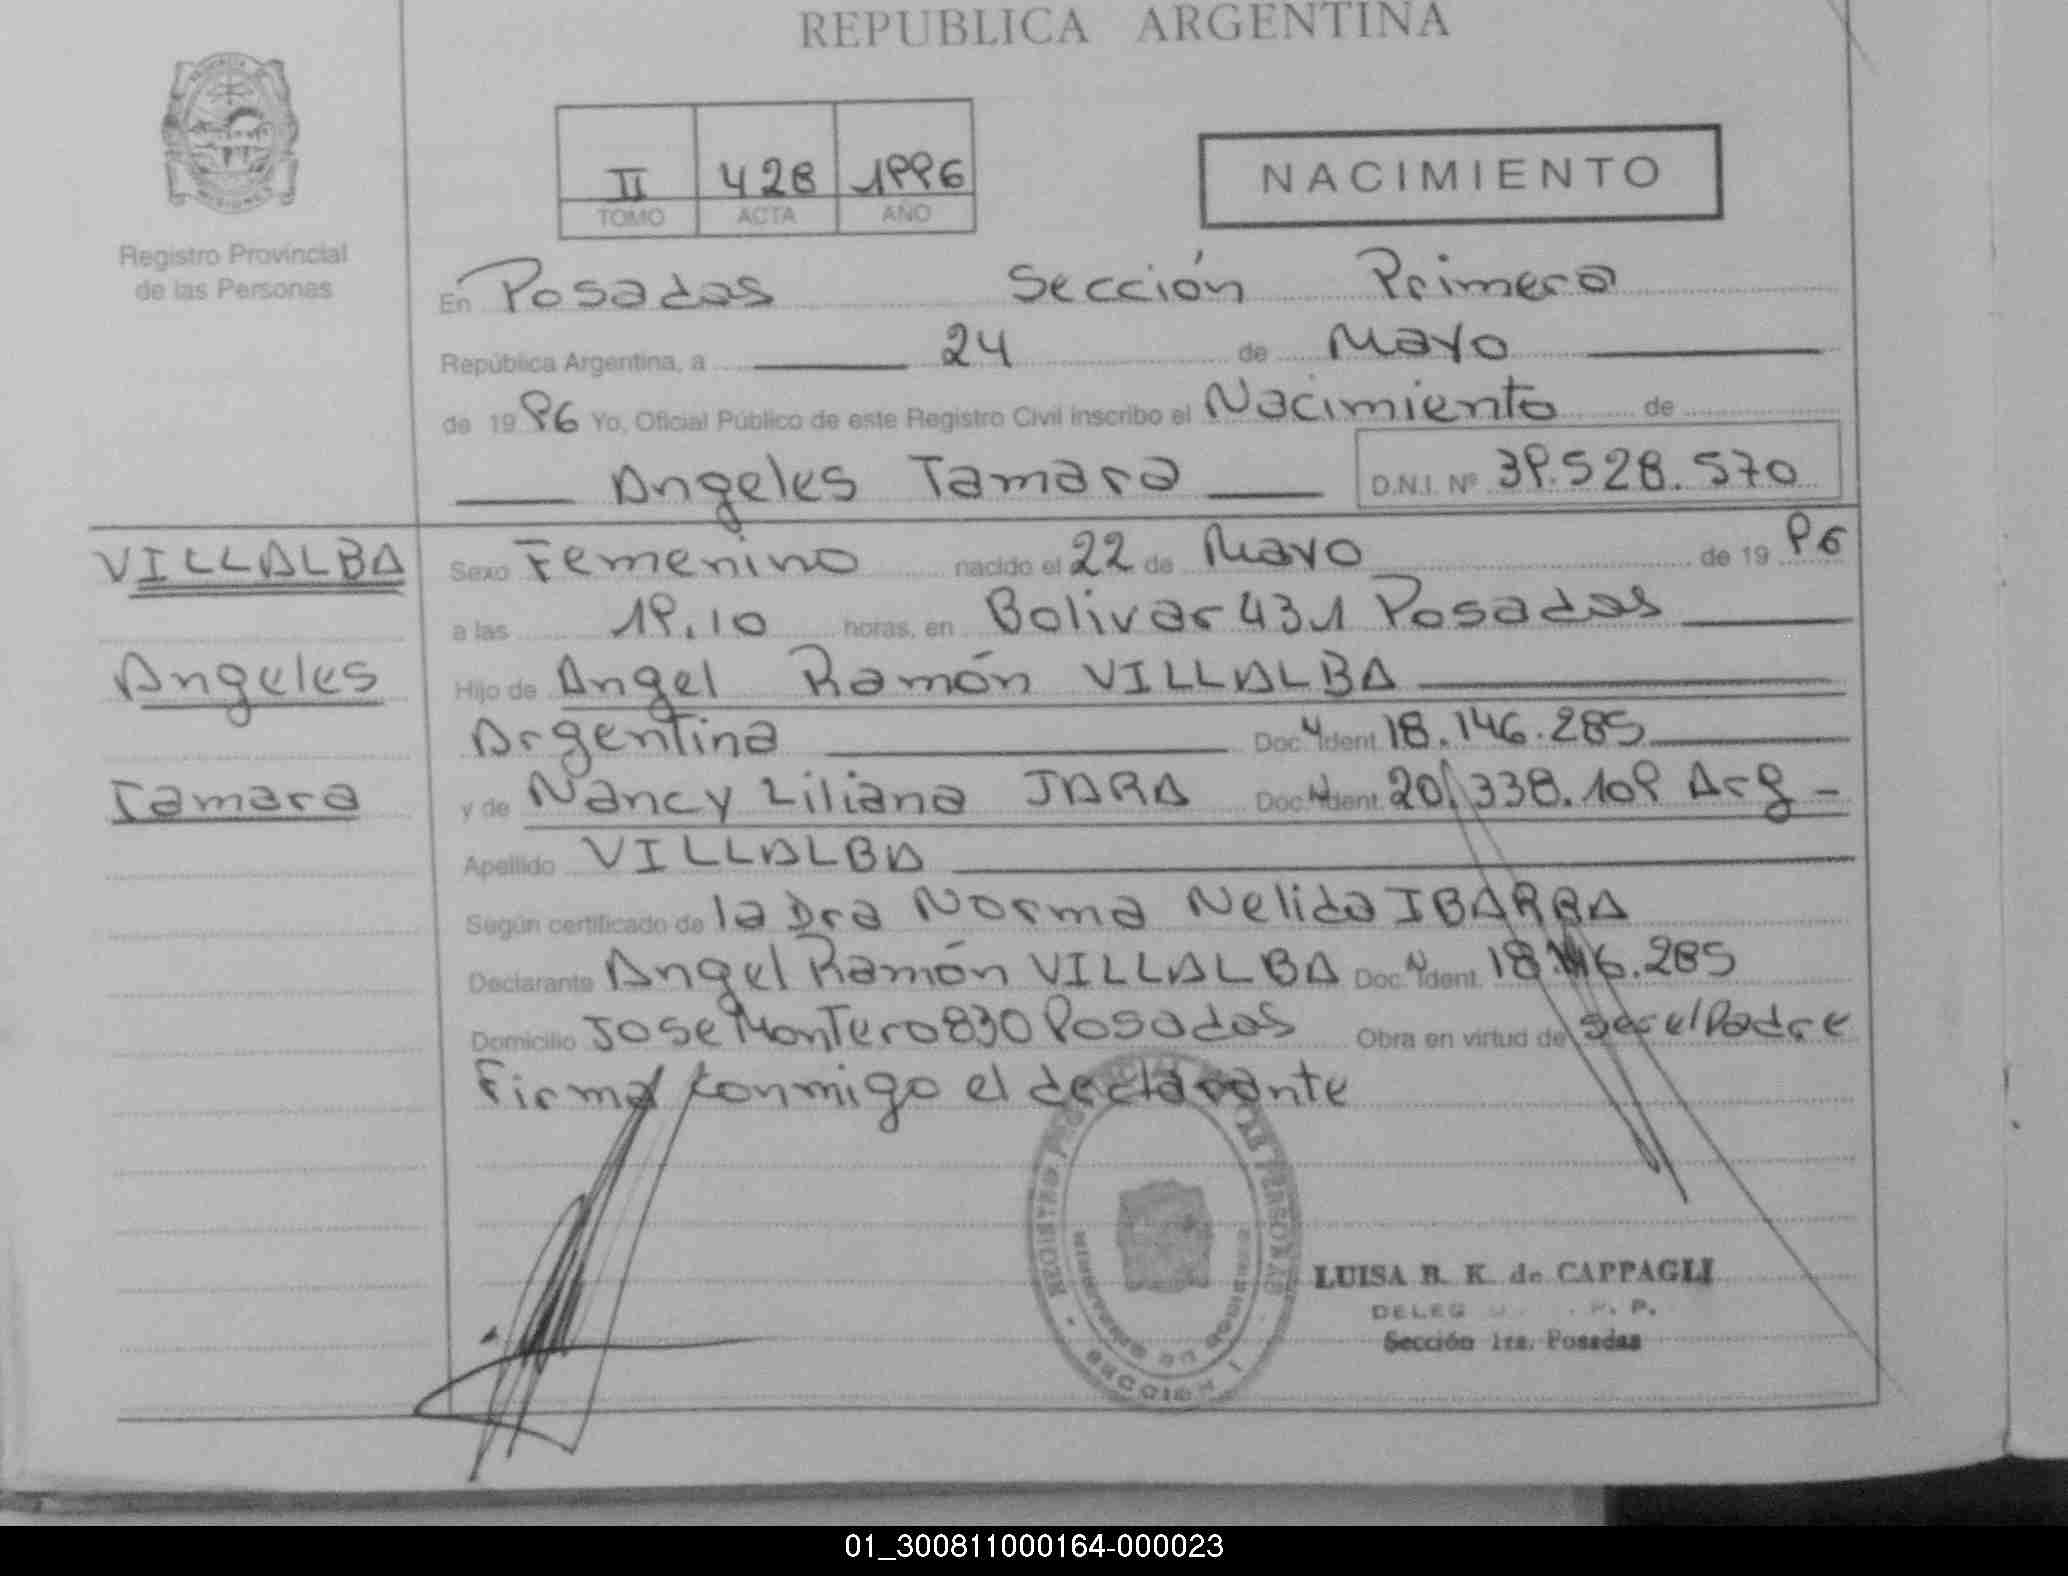 REPUBLICA ARGENTINA
II 428 1996
TOMO ACTA AÑO
NACIMIENTO
Registro Provincial
de las Personas
En Posadas Sección Primera
República Argentina, a 24 de Mayo
de 1996 Yo, Oficial Público de este Registro Civil inscribo el Nacimiento de
Angeles Tamara D.N.I. Nº 39.528.570
VILLALBA
Angeles
Tamara
Sexo Femenino nacido el 22 de Mayo de 1996
a las 19.10 horas, en Bolivar 431 Posadas
Hijo de Angel Ramón VILLALBA
Argentina Doc. N Ident. 18.146.285
y de Nancy Liliana JARA Doc. N Ident. 20.338.109 Arg
Apellido VILLALBA
Según certificado de la Dra Norma Nelida IBARRA
Declarante Angel Ramón VILLALBA Doc. N Ident. 18.146.285
Domicilio Jose Montero 830 Posadas Obra en virtud de ser el Padre
Firma conmigo el declarante
LUISA B. K. de CAPPAGLI
Sección 1ra. Posadas
01_300811000164-000023